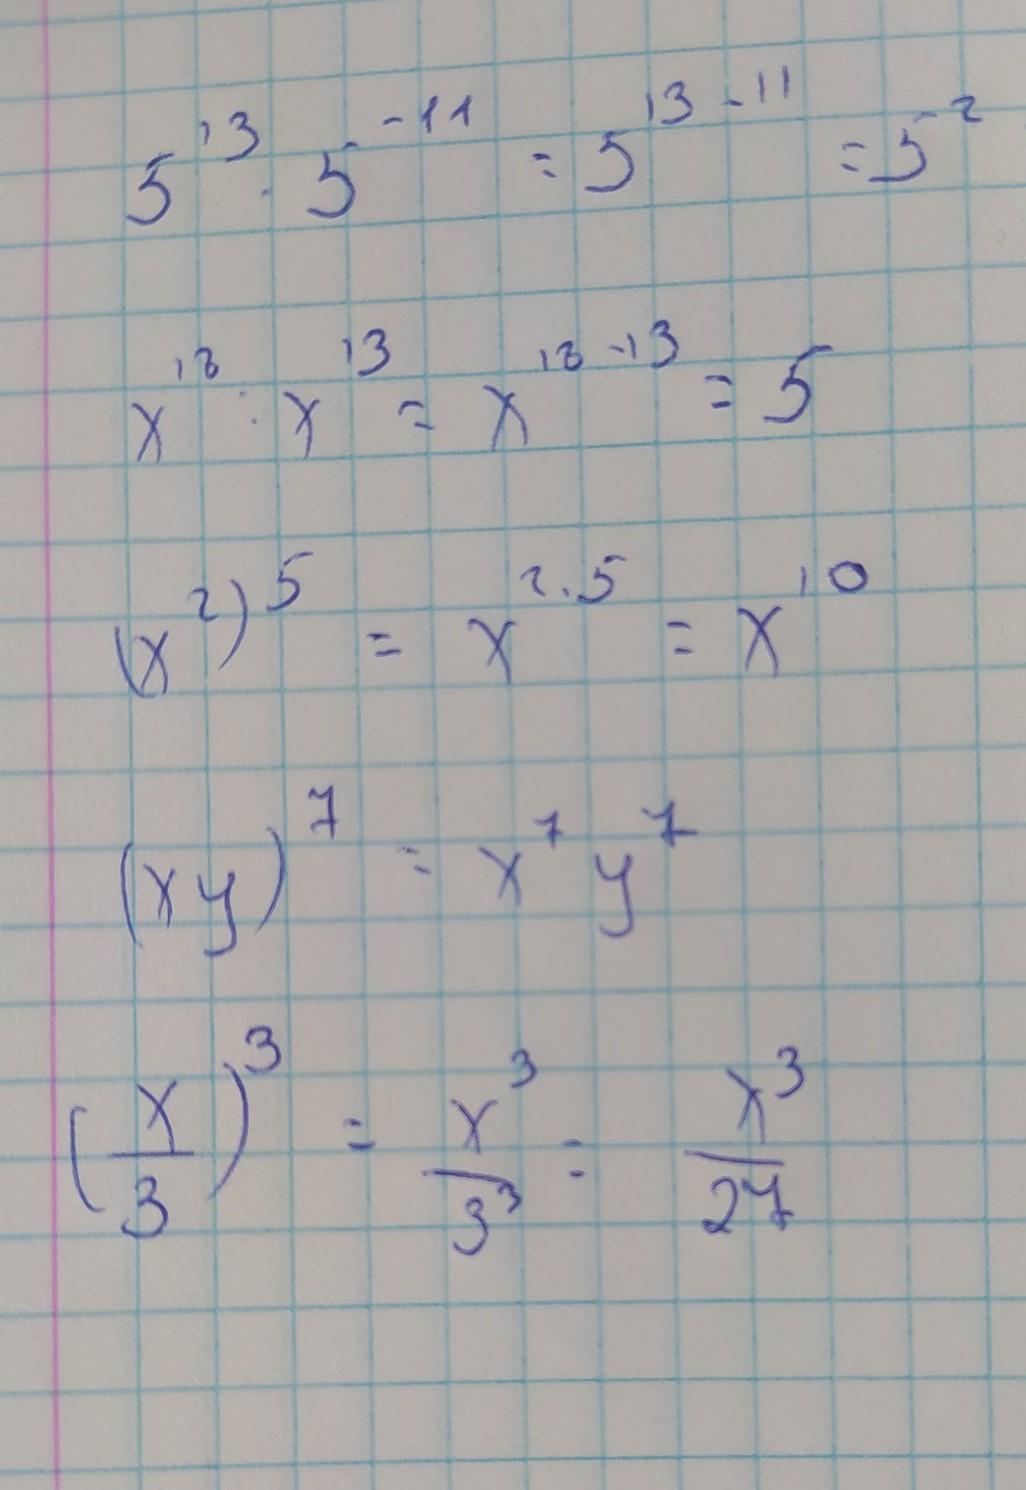 5¹³ · 5⁻¹¹ = 5¹³⁻¹¹ = 5²
x¹⁸ : x¹³ = x¹⁸⁻¹³ = 5
(x²)⁵ = x²·⁵ = x¹⁰
(xy)⁷ = x⁷ y⁷
(x/3)³ = x³/3³ = x³/27